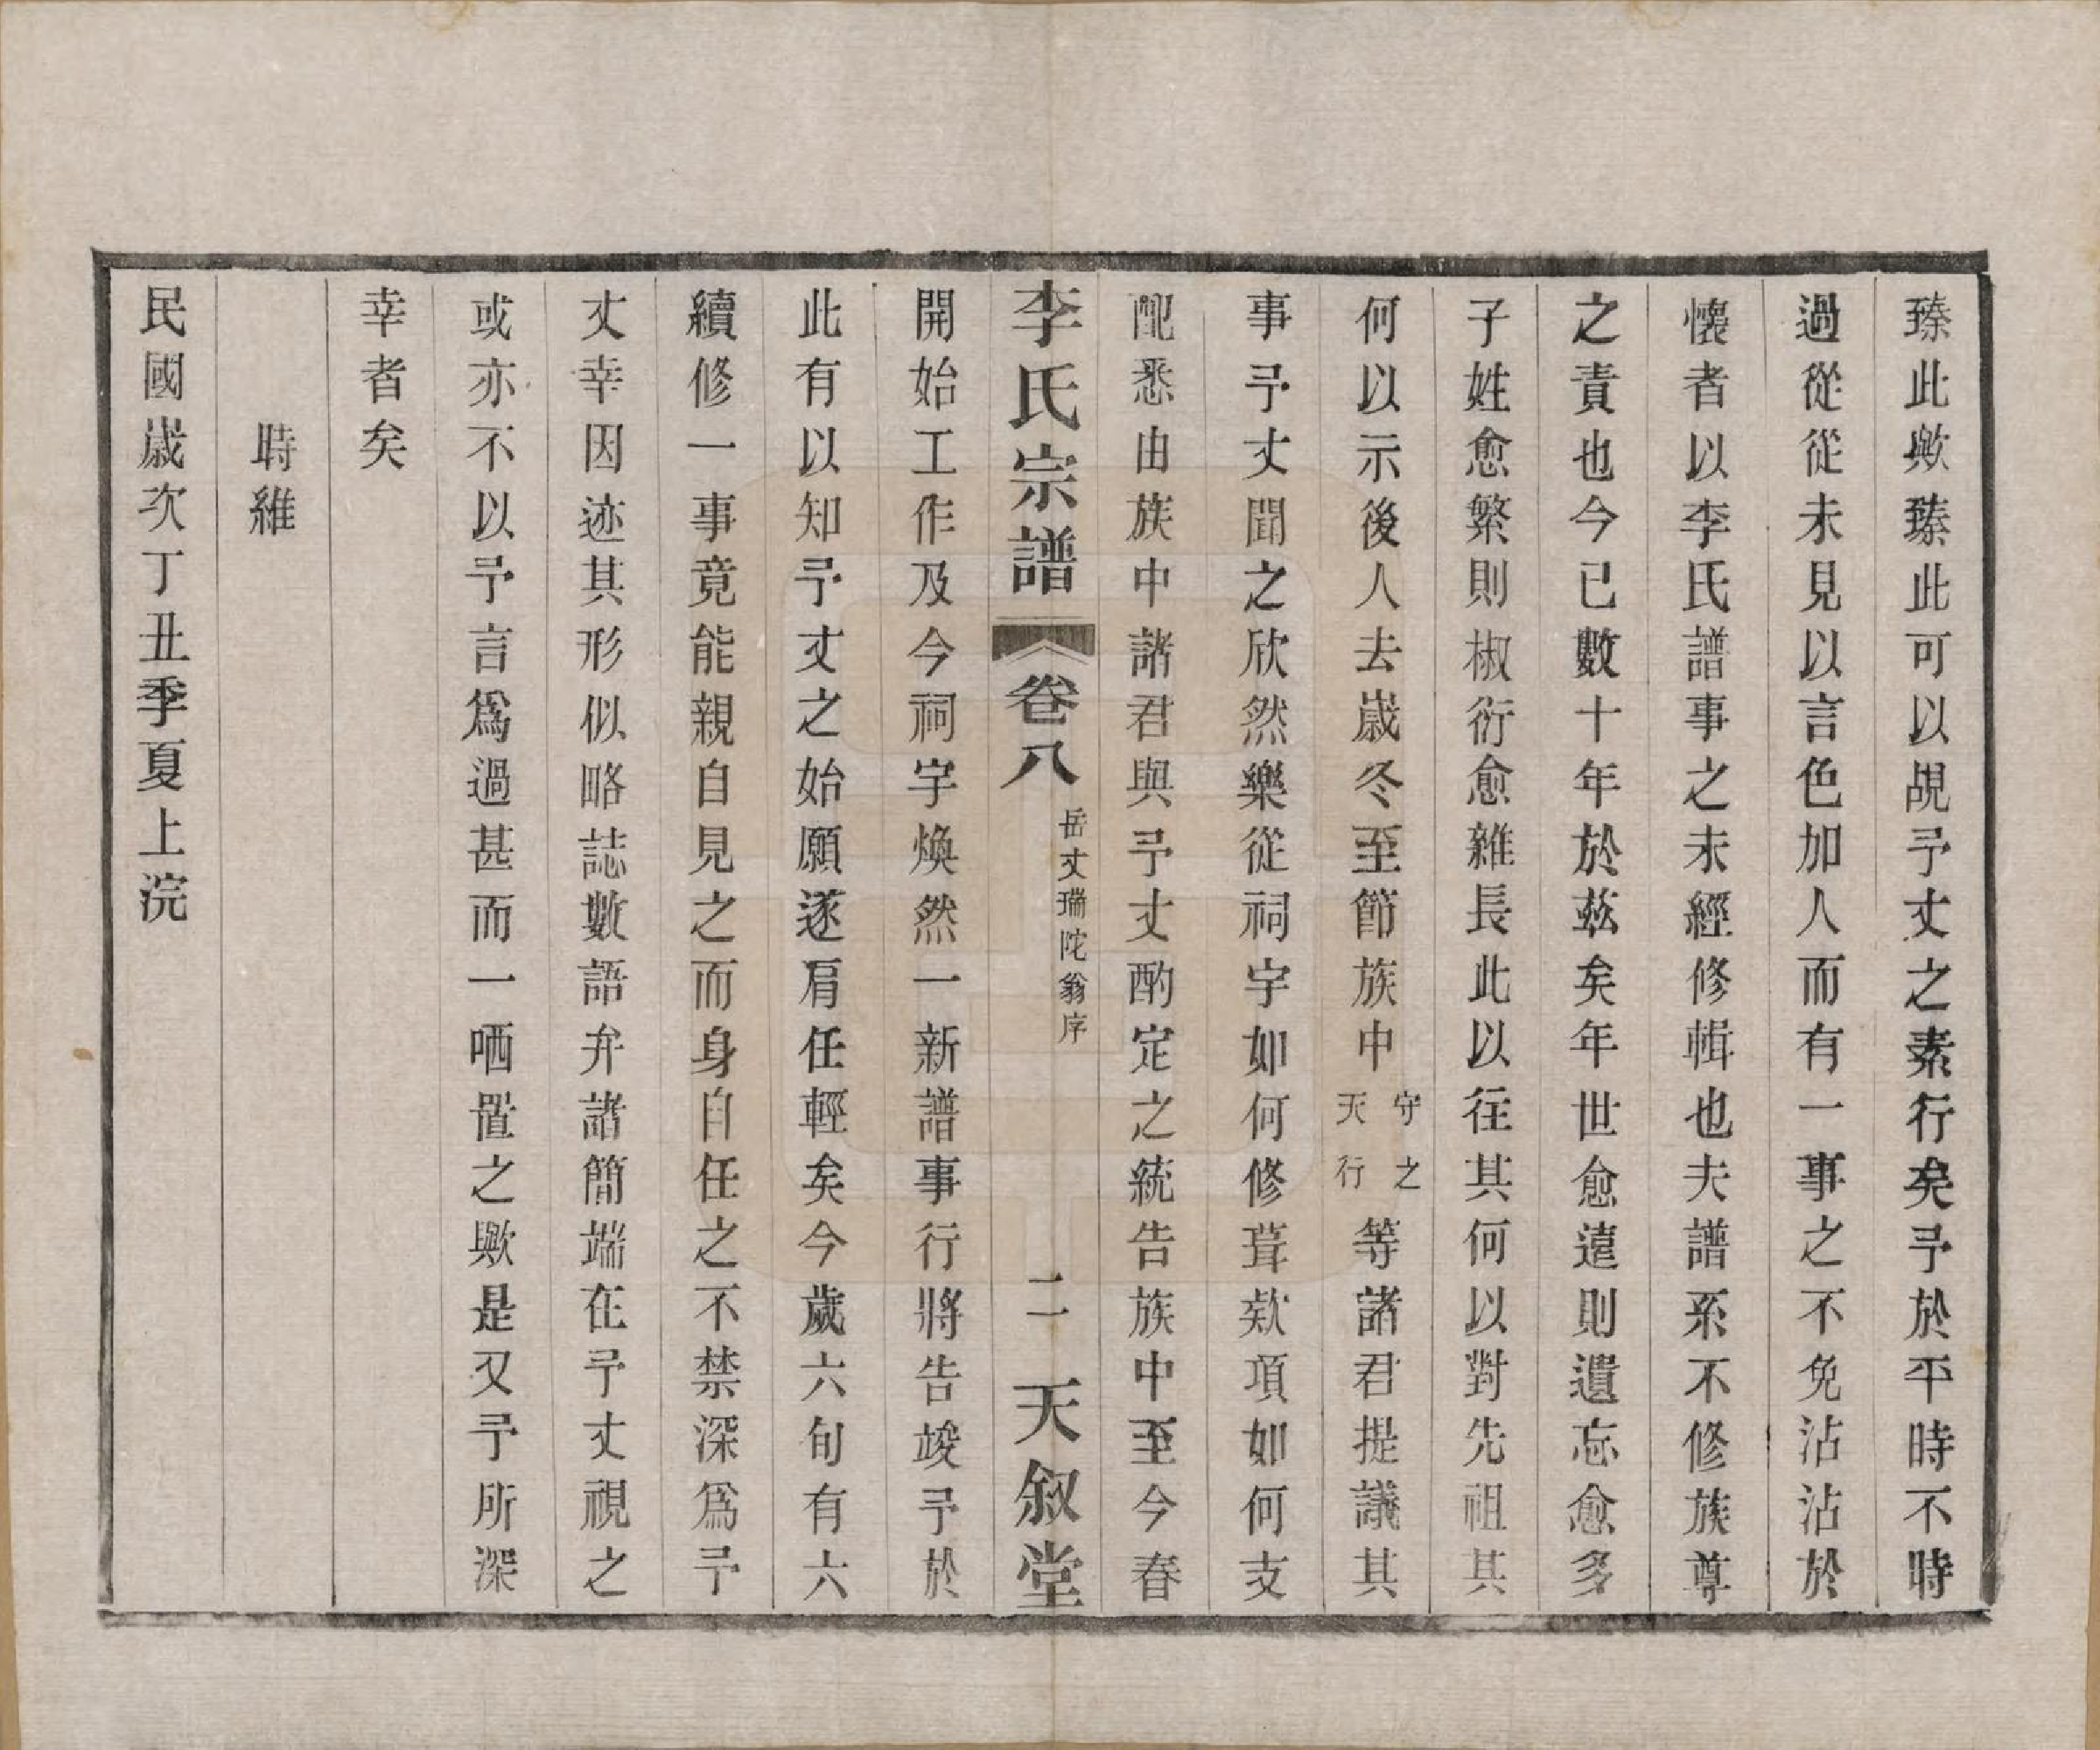 臻此歟臻此可以覘予丈之素行矣予於平時不時
過從從未見以言色加人而有一事之不免沾沾於
懷者以李氏譜事之未經修輯也夫譜系不修族尊
之責也今已數十年於茲矣年世愈遠則遺忘愈多
子姓愈繁則椒衍愈雜長此以往其何以對先祖其
何以示後人去歲冬至節族中守之天行等諸君提議其
事予丈聞之欣然樂從祠宇如何修葺欵項如何支
配悉由族中諸君與予丈酌定之統告族中至今春
李氏宗譜 卷八 岳丈瑞陀翁序 二 天叙堂
開始工作及今祠宇煥然一新譜事行將告竣予於
此有以知予丈之始願遂肩任輕矣今歲六旬有六
續修一事竟能親自見之而身自任之不禁深爲予
丈幸因迹其形似略誌數語弁諸簡端在予丈視之
或亦不以予言爲過甚而一哂置之歟是又予所深
幸者矣
時維
民國歲次丁丑季夏上浣